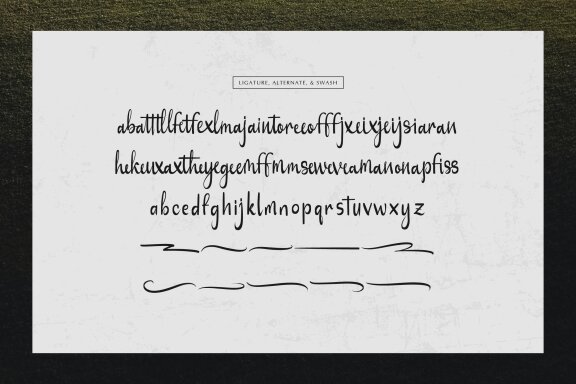 LIGATURE, ALTERNATE, & SWASH
abatttllfetfexlmajaintoreeofffjxeixjeijsiaran
hekeuxaxtheyegeemffmmseweveamanonapfiss
abcedfghijklmnopqrstuvwxyz